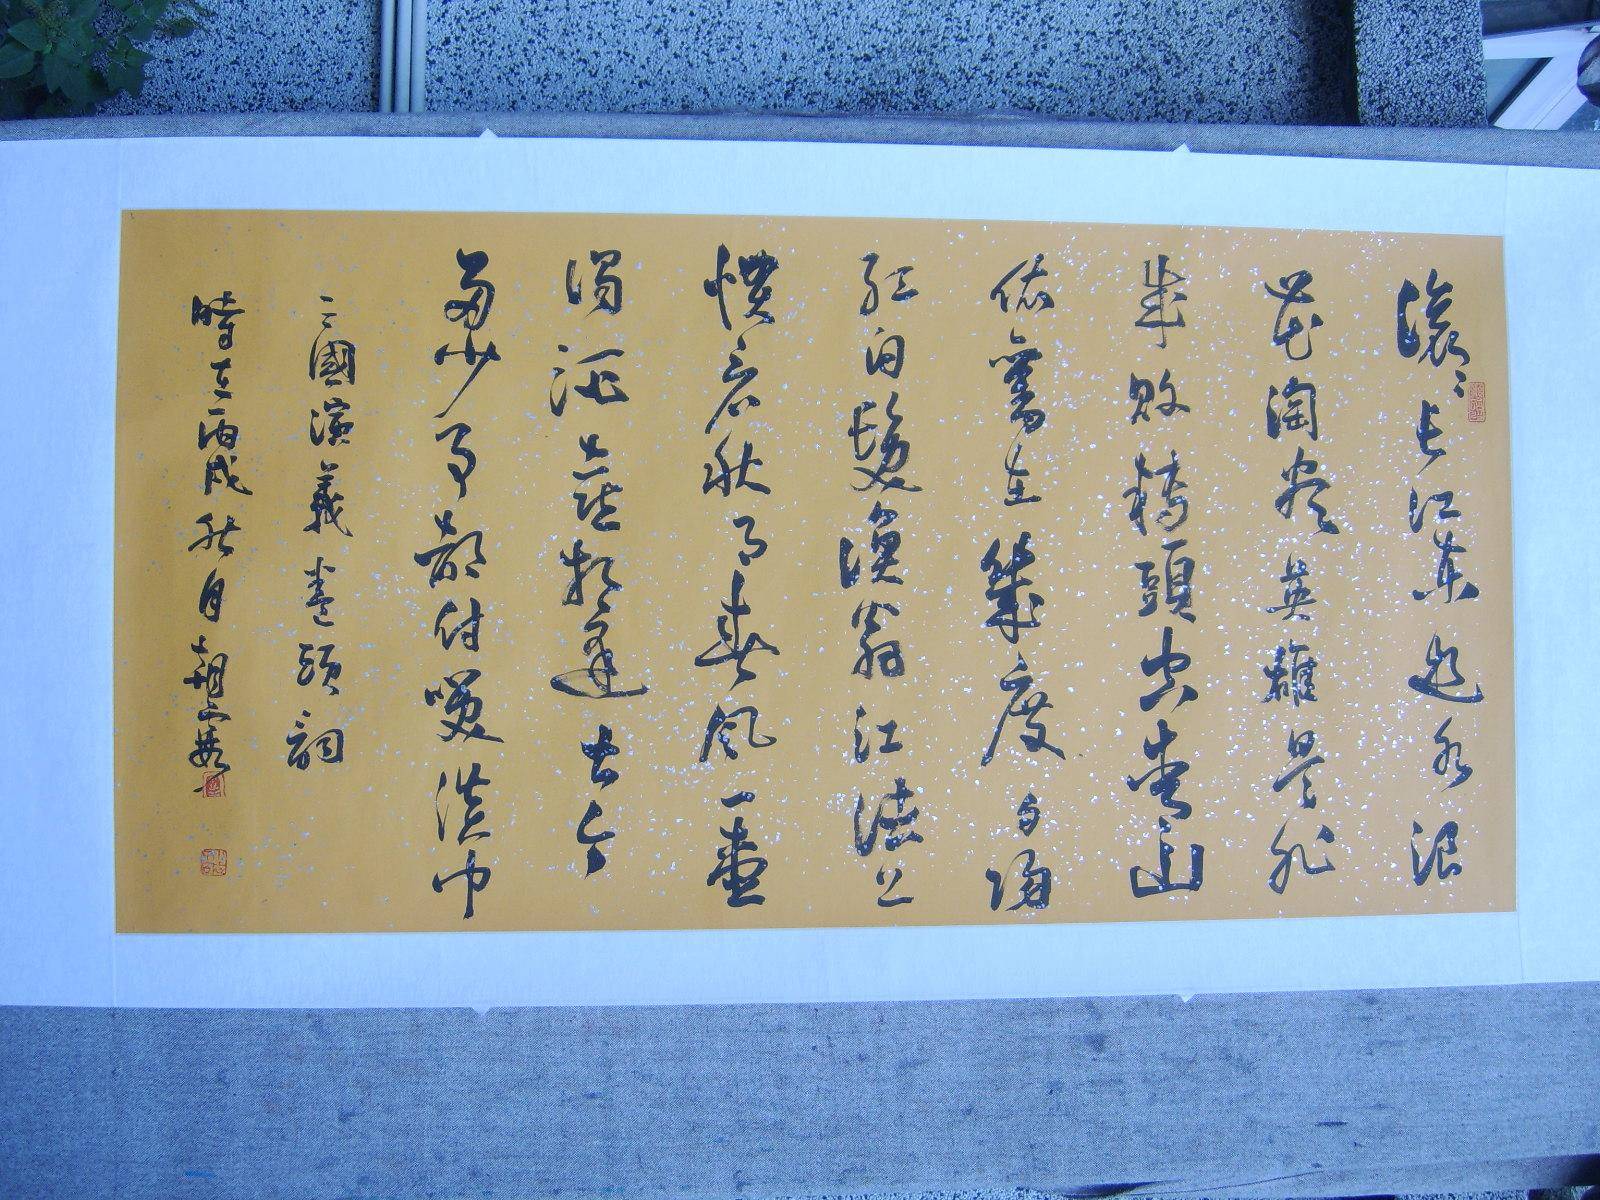 滾〻長江東逝水浪
花淘盡英雄是非
成敗轉頭空青山
依舊在幾度夕陽
紅白髮漁翁江渚上
慣看秋月春風一壺
濁酒喜相逢古今
多少事都付笑談中
三國演義卷頭詞
時在丙戌秋月朝霞